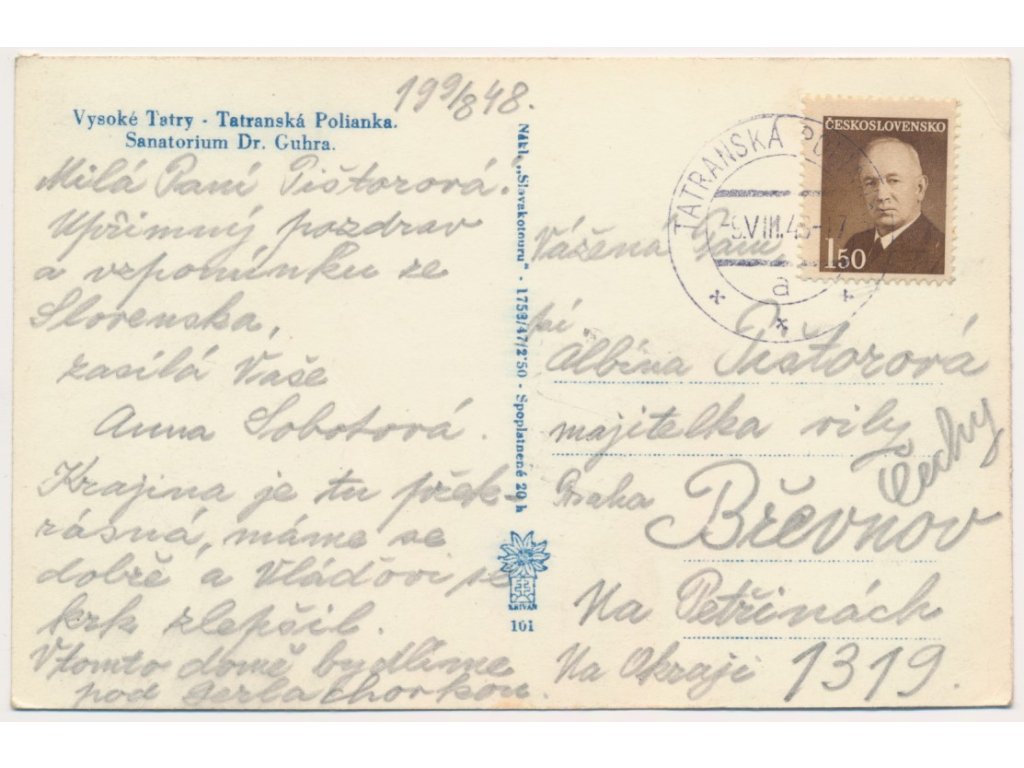 199/8 48.
Vysoké Tatry - Tatranská Polianka.
Sanatorium Dr. Guhra.
Milá Paní Pištorová!
Upřimný pozdrav
a vzpomínku ze
Slovenska,
zasílá Vaše
Anna Sobotová.
Krajina je tu přek-
rásná, máme se
dobře a Vláďovi se
krk zlepšil.
V tomto domě bydlíme
pod Gerlachovkou.
Nákl. „Slavakotouru" - 1753/47/2'50 - Spoplatnené 20 h
KRIVÁŇ
101
ČESKOSLOVENSKO
1.50
TATRANSKÁ
-9.VIII.48-17
a
Vážená Paní
pí
Albína Pištorová
majitelka vily
Praha Břevnov
Čechy
Na Petřinách
Na Okraji 1319.